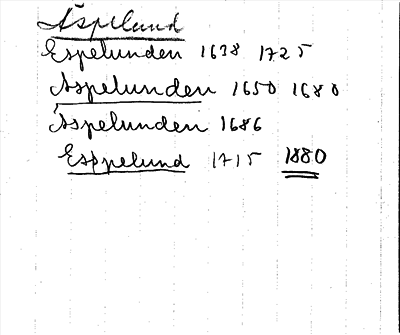 Äspelund
Espelunden 1638 1725
Äspelunden 1650 1680
Äspelunden 1686
Esppelund 1715 1880